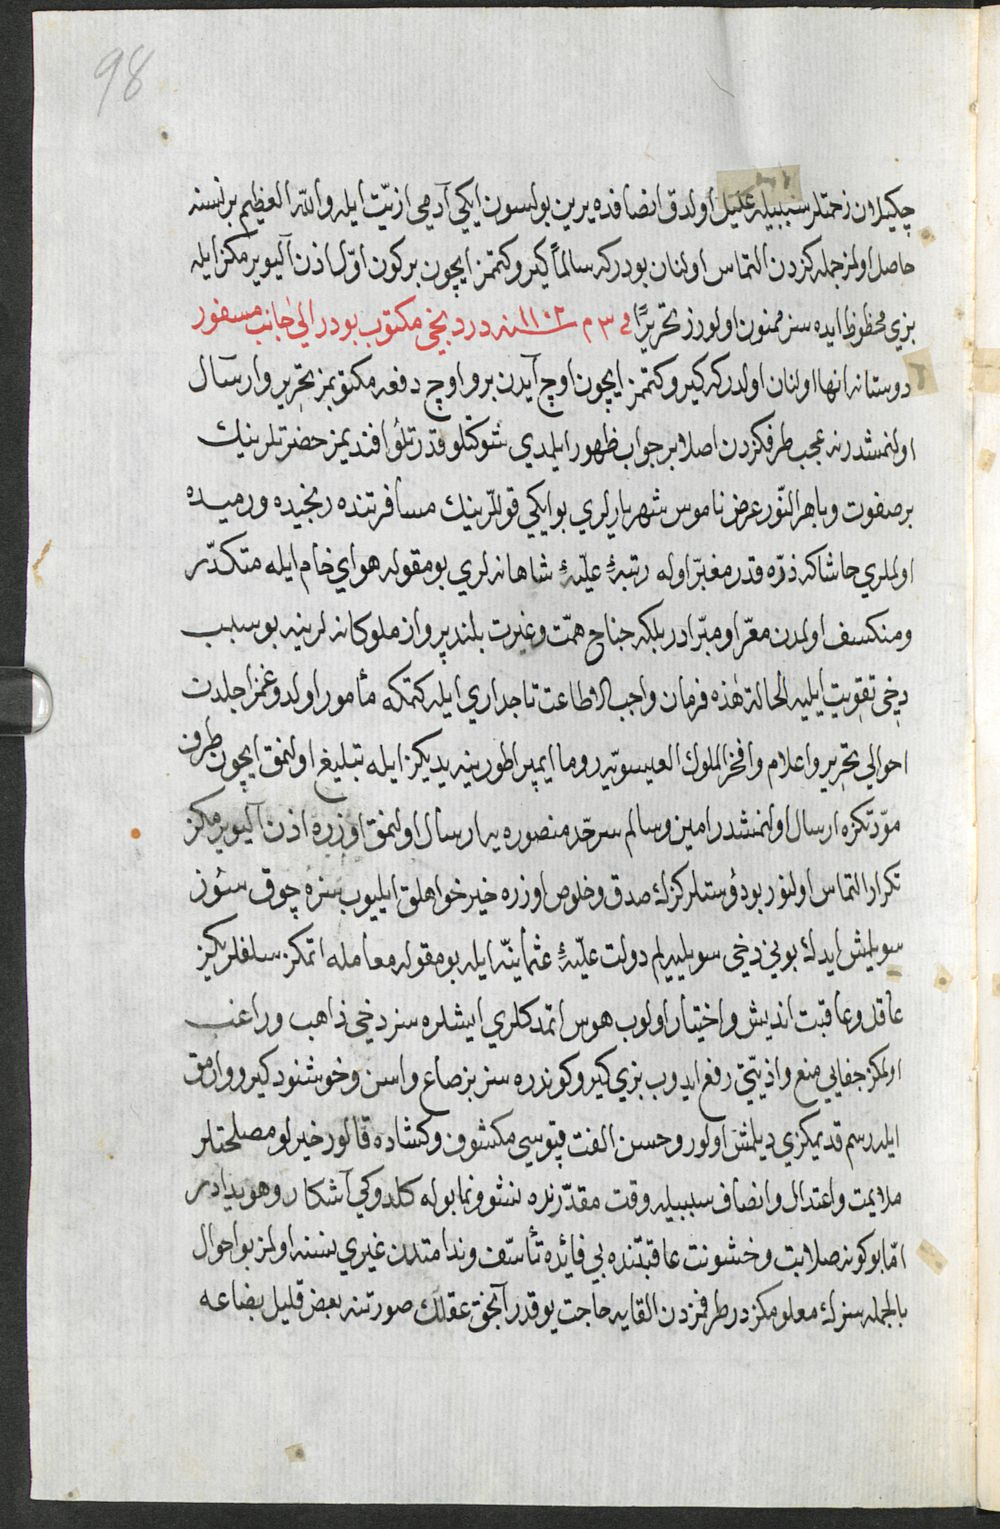 98
چكيلان زحمتلر سببيله عليل اولدق انصافده يرين بولسون ايكي آدمي ازيّت ايله والله العظيم بر نسنه
حاصل اولمز جمله كزدن التماس اولنان بودركه سالماً كيرو كتمز ايچون بركون اوّل اذن آليويرمكز ايله
بزي محظوظ ايده سز ممنون اولورز تحريرًا في ٣ م سنه ١١٠٢ دردنجي مكتوب بودر الى جانب مسفور
دوستانه انها اولنان اولدركه كيرو كتمز ايچون اوچ آيدن برو اوچ دفعه مكتوبمز تحرير وارسال
اولنمشدر نه عجب طرفكزدن اصلا بر جواب ظهور ايلمدي شوكتلو قدرتلؤ افنديمز حضرتلرينك
برصفوت وباهر النّور عرض ناموس شهرياريلري بو ايكي قوللرينك مسافرتنده رنجيده ورميده
اولملري حاشاكه ذرّه قدر مغبّر اوله رتبهٔ عليّهٔ شاهانه لري بو مقوله هواي خام ايله متكدّر
ومنكسف اولمدن معرّا ومبّرادر بلكه جناح همّت وغيرت بلند پرواز ملوكانه لرينه بو سبب
دخى تقويت ايليه الحالة هٰذه فرمان واجب الاطاعت تاجداري ايله كتمكه مأمور اولدوغمز اجلدن
احوالي تحرير واعلام وافخر الملوك العيسويّه روما ايمپراطورينه يديكز ايله تبليغ اولنمق ايچون طرف
مودّتكزه ارسال اولنمشدر امين وسالم سرحّد منصوره يه ارسال اولنمق اوزره اذن آليويرمكز
تكرار التماس اولنور بو دؤستلركزك صدق وخلوص اوزره خير خواهلق ايليوب سزه چوق سوز
سويلمش ايدك بوني دخى سويليه لم دولت عليّهٔ عثمانيّه ايله بو مقوله معامله اتمكز سلفلريكيز
عاقل وعاقبت انديش واختيار اولوب هوس اتمدكلري ايشلره سز دخى ذاهب وراغب
اولمكز جفايي منع واذيّتي رفع ايدوب بزي كيرو كوندره سز بز صاغ واسن وخوشنود كيرو وارمق
ايله رسم قديمكزي ديلمش اولور وحسن الفت قپوسي مكشوف وكشاده قالور خيرلو مصلحتلر
ملايمت واعتدال وانصاف سببيله وقت مقدّرنده نشو ونما بوله كلدوكي آشكار وهويدادر
امّا بوكونه صلابت وخشونت عاقبتنده بي فائده تأسّف وندامتدن غيري نسنه اولمز بو احوال
بالجمله سزك معلومكزدر طرفمزدن القايه حاجت يوقدر آنجق عقللك صورتنه بعض قليل بضاعه